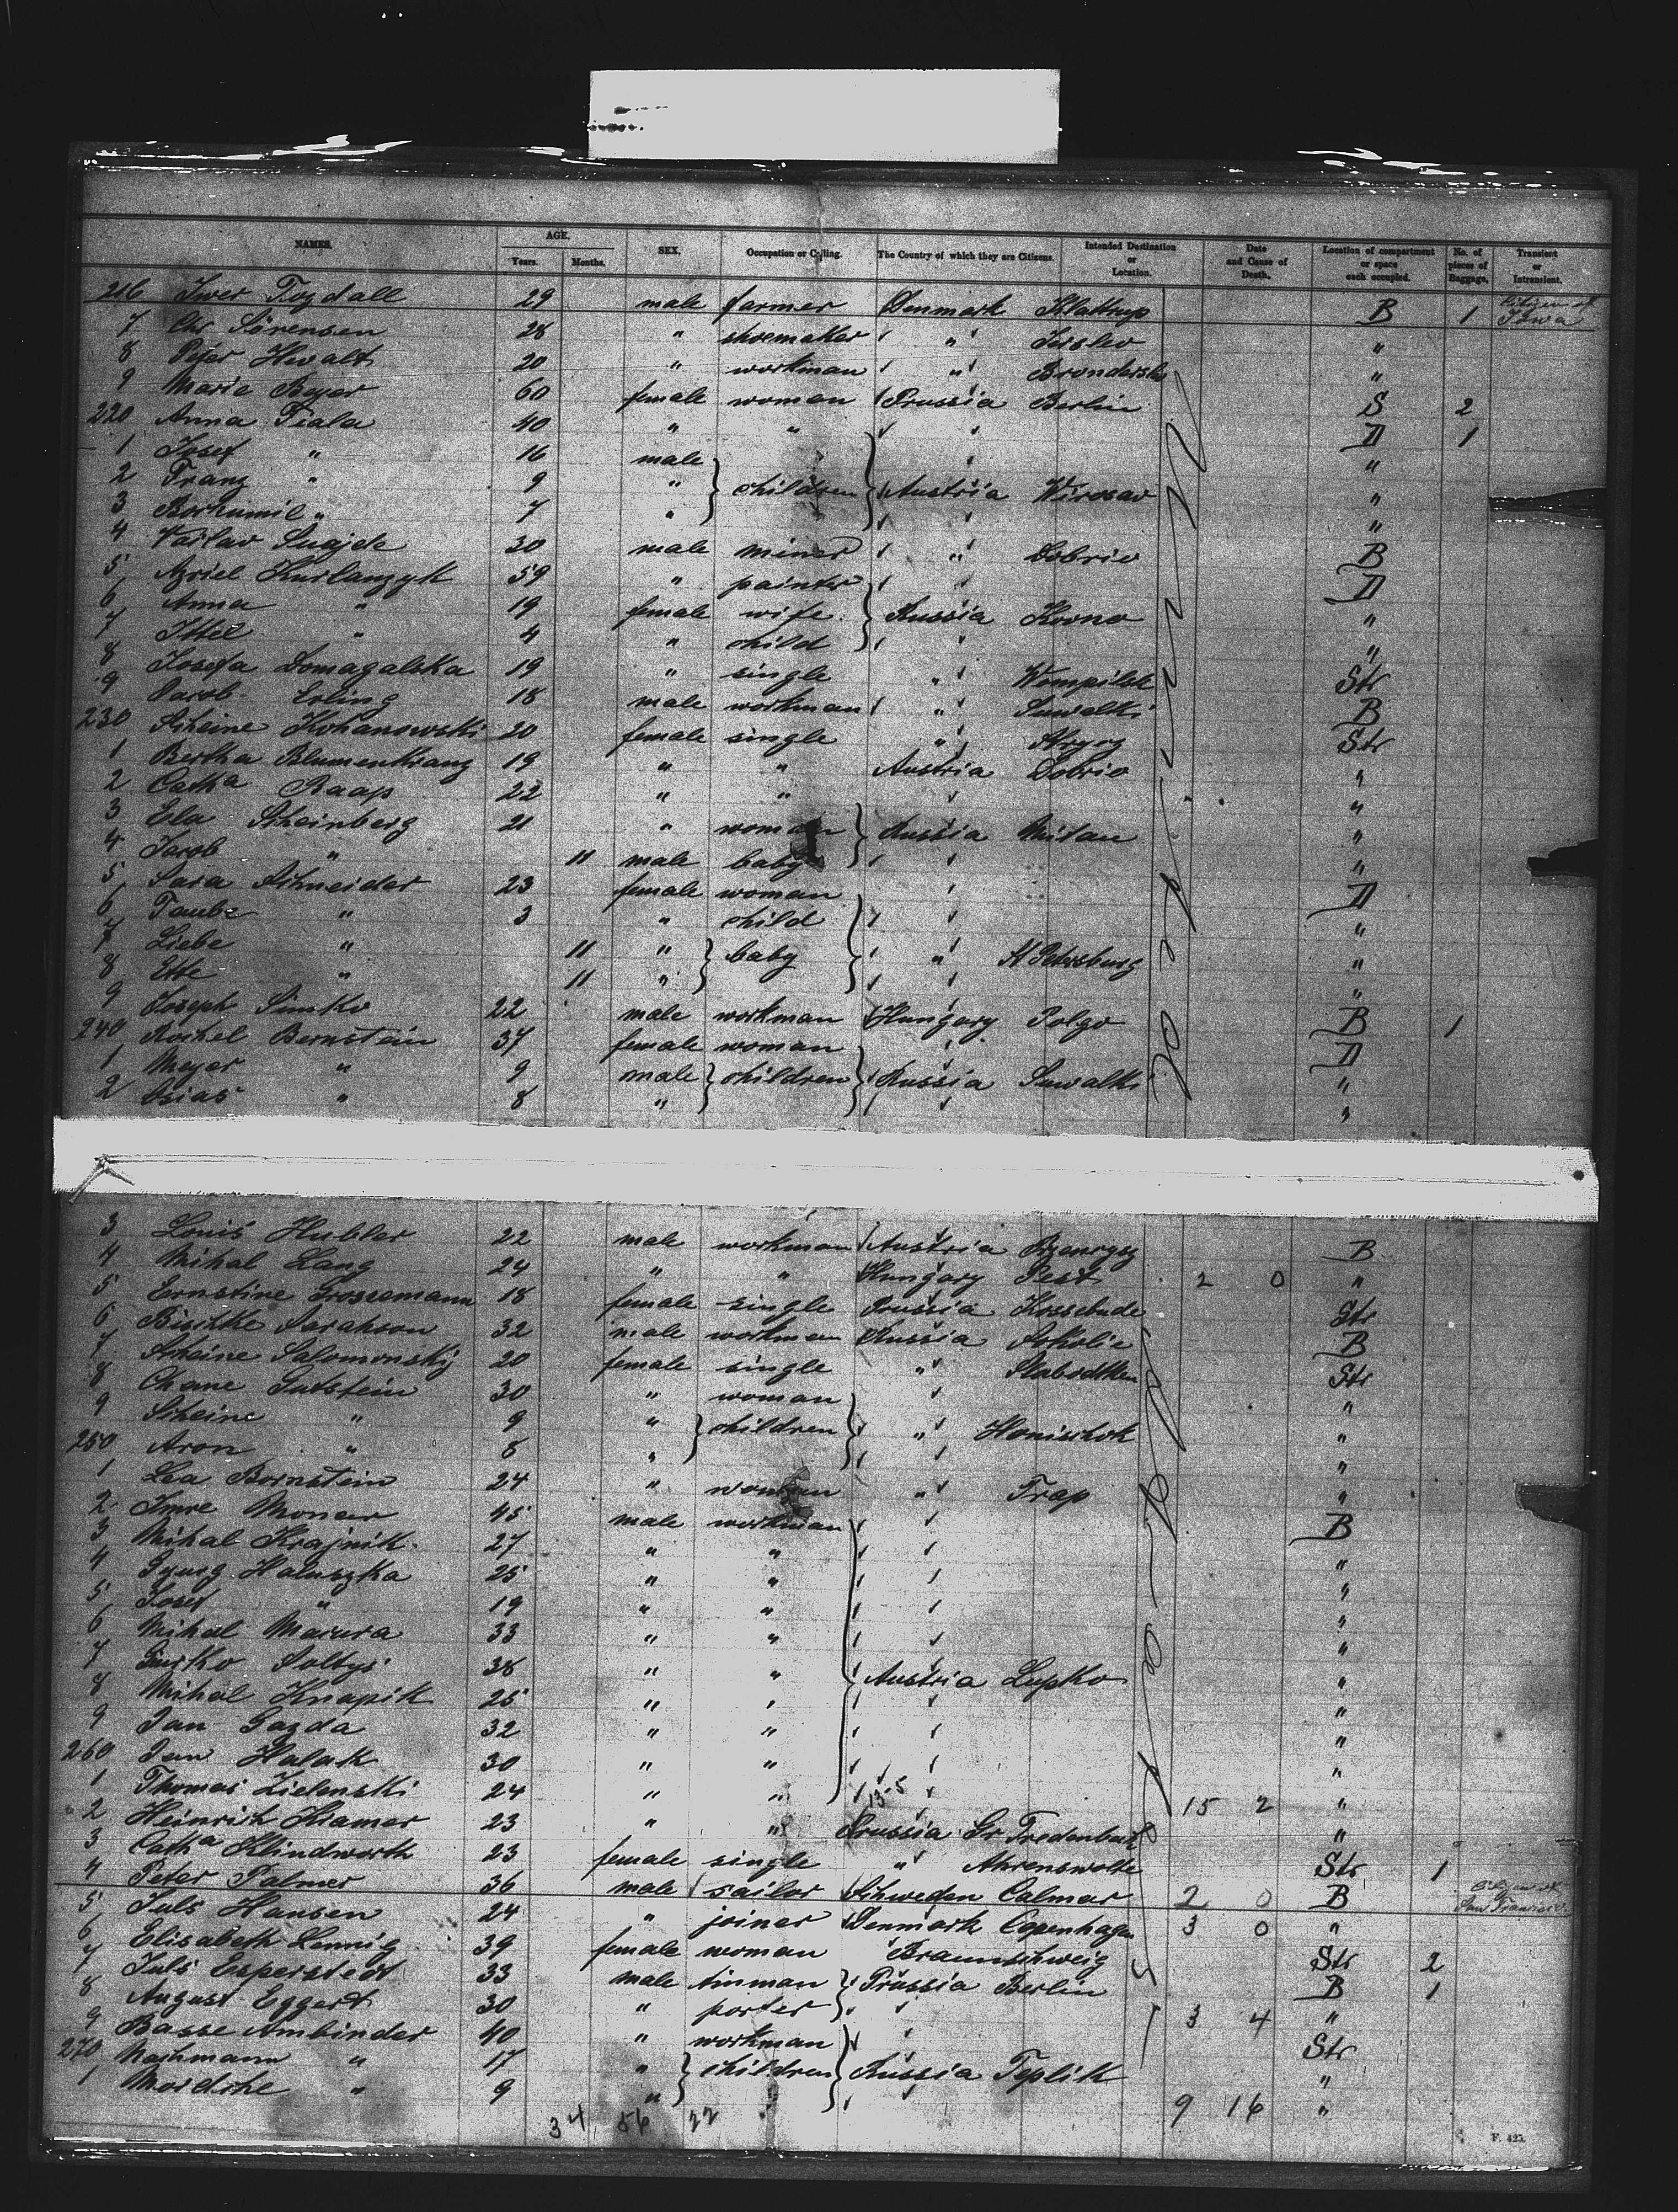 NAMES. AGE. SEX. Occupation or Calling. The Country of which they are Citizens. Intended Destination or Location. Date and Cause of Death. Location of compartment or space each occupied. No. of pieces of Baggage. Transient or Intransient.
Years. Months.
216 Iwer Togdall 29 male farmer Denmark Klattrup B 1 Citizen of Iowa
7 Chr Sörensen 28 " shoemaker " Jerslev "
8 Peter Hevalt 20 " workman " "
9 Marie Beyer 60 female woman Prussia Berlin S 2
220 Anna Fiala 40 " " D 1
1 Josef " 16 male "
2 Franz " 9 " children Austria Wirosav "
3 Borhumil " 7 " "
4 Vaclav 30 male miner " Dobriv B
5 Azriel Kurlanzyk 59 " painter D
6 Anna " 19 female wife Russia Kovno "
7 Ittel " 4 " child "
8 Josefa Domagalska 19 " single " Wompilsk Str
9 Jacob Erling 18 male workman " Suwalki B
230 Scheine Kohanowski 20 female single " Str
1 Bertha Blumenkranz 19 " " Austria Dobrio "
2 Catha Raap 22 " " "
3 Ela Scheinberg 21 " woman Russia Mitau "
4 Jacob " 11 male baby "
5 Sara Schneider 23 female woman D
6 Taube " 3 " child "
7 Liebe " 11 " baby " St Petersburg "
8 Ette " 11 " "
9 Joseph Simko 22 male workman Hungary Polgo B 1
240 Rachel Bernstein 37 female woman D
1 Meyer " 9 male children Russia Suwalki "
2 Osias " 8 " "
3 Louis Hubler 22 male workman Austria B
4 Mihal Lang 24 " " Hungary Pest 2 0 "
5 Ernstine Grossemann 18 female single Prussia Kossebude Str
6 Sarahson 32 male workman Russia Sokolie B
7 Scheine Salomonskij 20 female single " Slabodtken Str
8 Chane Gutstein 30 " woman "
9 Scheine " 9 " children " Honischok "
250 Aron " 8 " "
1 Lea Bornstein 24 " woman " Trap "
2 Imre Monar 45 male workman B
3 Mihal Krajnik 27 " " "
4 Gyurg Haluszka 25 " " "
5 Josef " 19 " " "
6 Mihal Macura 33 " " "
7 Soltys 38 " " Austria Lupko "
8 Mihal Knapik 25 " " "
9 Jan Gazda 32 " " "
260 Jan Halak 30 " " "
1 Thomas Zielenski 24 " " 13-5 15 2 "
2 Heinrich Kramer 23 " " Prussia Gr Fredenbeck "
3 Catha Klindworth 23 female single " Ahrenswolde Str 1
4 Peter Palmer 36 male sailor Schweden Calmar 2 0 B Citizen of San Francisco
5 Juls Hansen 24 " joiner Denmark Copenhagen 3 0 "
6 Elisabeth Lennig 39 female woman Braunschweig Str 2
7 Juls Esperstedt 33 male tinman Prussia Berlin B 1
8 August Eggert 30 " porter 3 4 "
9 Basse Ambinder 40 " workman Str
270 Nachmann " 17 " children Russia Teplik "
1 Mordche " 9 " 9 16 "
34 56 22
F. 425.